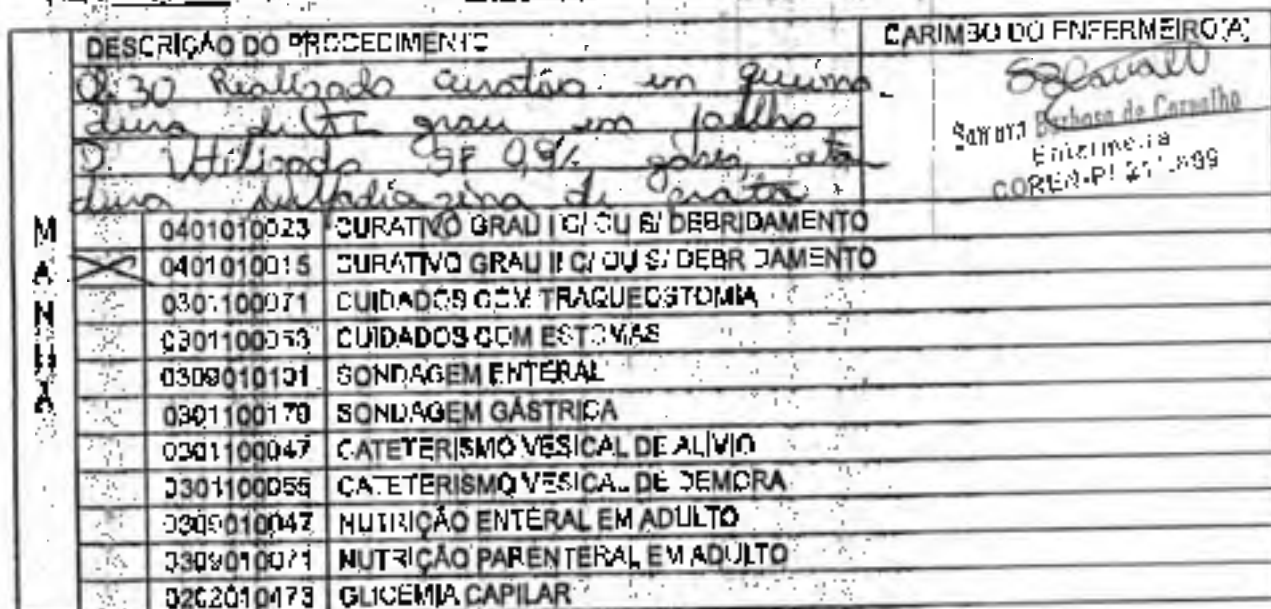 DESCRIÇÃO DO PROCEDIMENTO
CARIMBO DO ENFERMEIRO(A)
Realizado curativo em queima
dura de grau em joelho
D. Utilizado SF 0,9% gases, ata
dura sulfadiazina de prata
Barbosa de Carvalho
Enfermeira
COREN-PI
MANHÃ
0401010023 CURATIVO GRAU I C/ OU S/ DEBRIDAMENTO
0401010015 CURATIVO GRAU II C/ OU S/ DEBRIDAMENTO
0301100071 CUIDADOS COM TRAQUEOSTOMIA
0301100063 CUIDADOS COM ESTOMAS
0309010101 SONDAGEM ENTERAL
0301100179 SONDAGEM GÁSTRICA
0301100047 CATETERISMO VESICAL DE ALÍVIO
0301100055 CATETERISMO VESICAL DE DEMORA
0309010047 NUTRIÇÃO ENTERAL EM ADULTO
0309010071 NUTRIÇÃO PARENTERAL EM ADULTO
0202010473 GLICEMIA CAPILAR